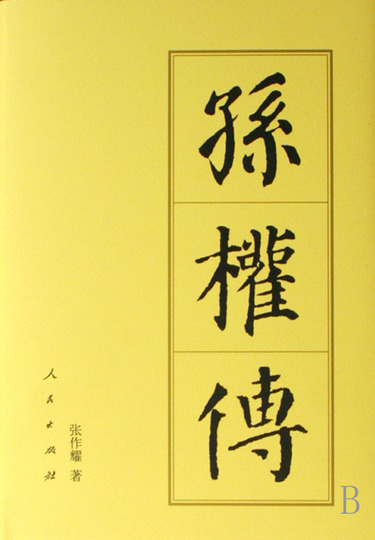 孫權傳
张作耀 著
人民出版社
B